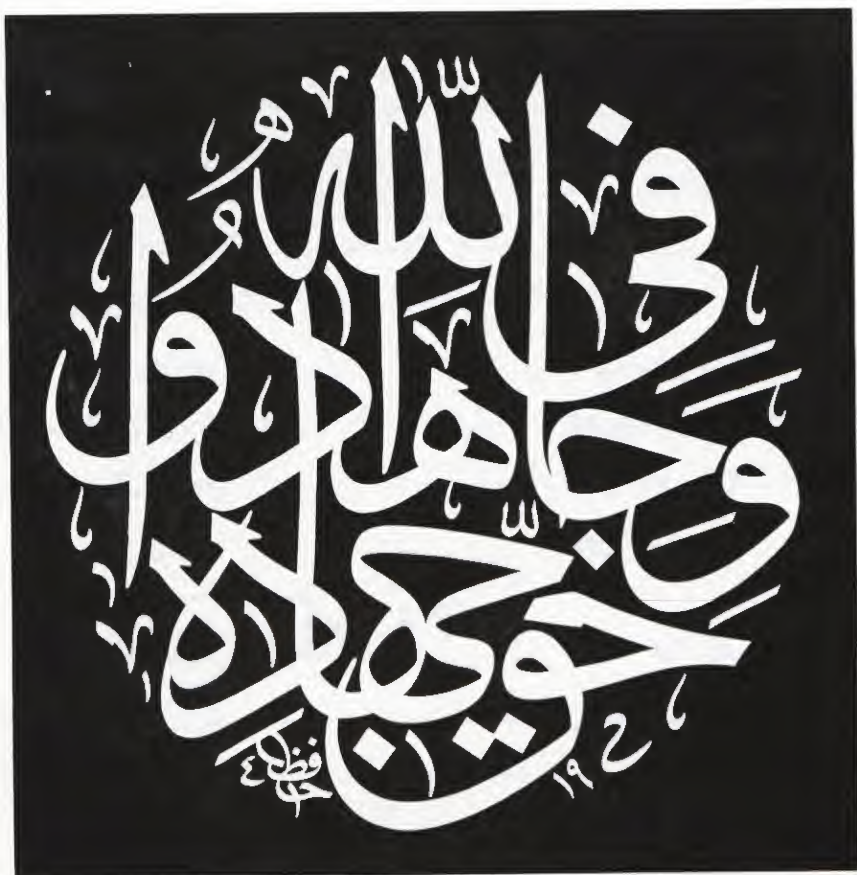 وَجَاهِدُوا فِي اللّٰهِ حَقَّ جِهَادِهِ
حافظ
١٩
٤